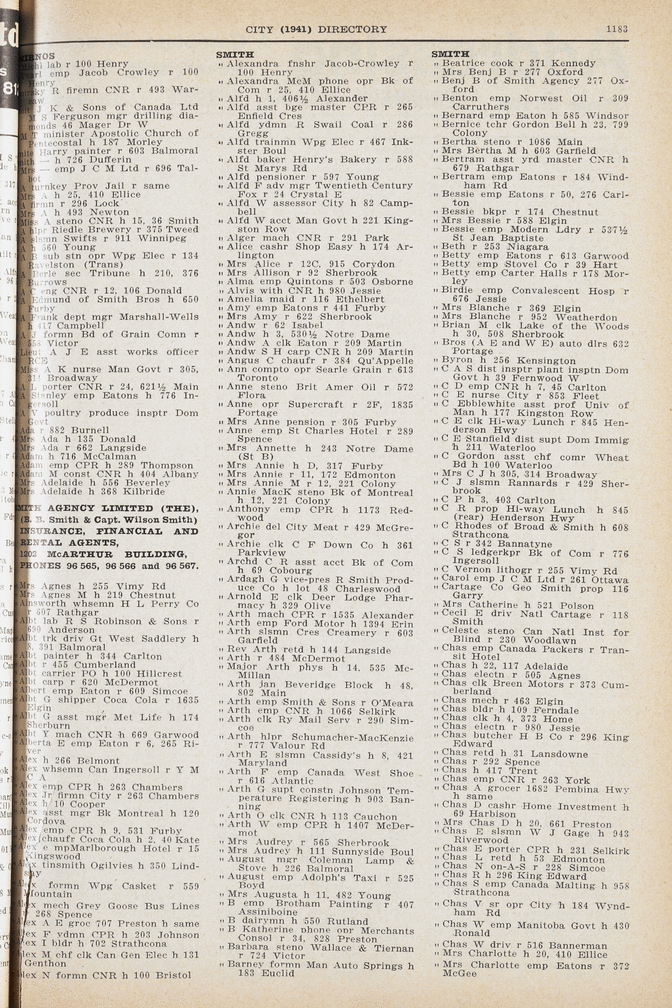 CITY (1941) DIRECTORY
1183
lab r 100 Henry
emp Jacob Crowley r 100
Henry
r firemn CNR r 493 War-
J K & Sons of Canada Ltd
M S Ferguson mgr drilling dia-
monds 46 Mager Dr W
M T minister Apostolic Church of
Pentecostal h 187 Morley
Harry painter r 603 Balmoral
— h 726 Dufferin
— emp J C M Ltd r 696 Tal-
bot
A turnkey Prov Jail r same
Mrs A h 25, 410 Ellice
A firmn r 296 Lock
Mrs A h 493 Newton
Mrs A steno CNR h 15, 36 Smith
A hlpr Riedle Brewery r 375 Tweed
A slsmn Swifts r 911 Winnipeg
h 560 Young
A B sub stn opr Wpg Elec r 134
Ravelston (Trans)
sec Tribune h 210, 376
Burrows
C eng CNR r 12, 106 Donald
Edmund of Smith Bros h 650
Furby
A Frank dept mgr Marshall-Wells
h 417 Campbell
A J formn Bd of Grain Comn r
558 Victor
Lieut A J E asst works officer
RCE
Miss A K nurse Man Govt r 305,
314 Broadway
A L porter CNR r 24, 621½ Main
A Stanley emp Eatons h 776 In-
gersoll
A V poultry produce insptr Dom
Govt
Ada r 882 Burnell
Mrs Ada h 135 Donald
Mrs Ada r 662 Langside
Adam h 716 McCalman
Adam emp CPR h 289 Thompson
Adam M const CNR h 404 Albany
Mrs Adelaide h 556 Beverley
Mrs Adelaide h 368 Kilbride
SMITH AGENCY LIMITED (THE),
(B. B. Smith & Capt. Wilson Smith)
INSURANCE, FINANCIAL AND
RENTAL AGENTS,
1202 McARTHUR BUILDING,
PHONES 96 565, 96 566 and 96 567.
Mrs Agnes h 255 Vimy Rd
Mrs Agnes M h 219 Chestnut
Ainsworth whsemn H L Perry Co
r 607 Rathgar
Albt lab R S Robinson & Sons r
690 Anderson
Albt trk driv Gt West Saddlery h
8, 391 Balmoral
Albt painter h 344 Carlton
Albt r 455 Cumberland
Albt carrier PO h 100 Hillcrest
Albt carp r 620 McDermot
Albert emp Eaton r 609 Simcoe
Albt G shipper Coca Cola r 1635
Elgin
Albt G asst mgr Met Life h 174
Sherburn
Albt Y mach CNR h 669 Garwood
Alberta E emp Eaton r 6, 265 Ri-
ver
Alex h 266 Belmont
Alex whsemn Can Ingersoll r Y M
C A
Alex emp CPR h 263 Chambers
Alex Jr firmn City r 263 Chambers
Alex h 10 Cooper
Alex asst mgr Bk Montreal h 120
Cordova
Alex emp CPR h 9, 531 Furby
Alex chaufr Coca Cola h 2, 40 Kate
Alex empMarlborough Hotel r 15
Kingswood
Alex tinsmith Ogilvies h 350 Lind-
say
Alex formn Wpg Casket r 559
Mountain
Alex mech Grey Goose Bus Lines
r 268 Spence
Alex A E groc 707 Preston h same
Alex F ydmn CPR h 203 Johnson
Alex I bldr h 702 Strathcona
Alex M chf clk Can Gen Elec h 131
Genthon
Alex N formn CNR h 100 Bristol
SMITH
" Alexandra fnshr Jacob-Crowley r
100 Henry
" Alexandra McM phone opr Bk of
Com r 25, 410 Ellice
" Alfd h 1, 406½ Alexander
" Alfd asst bge master CPR r 265
Enfield Cres
" Alfd ydmn R Swail Coal r 286
Gregg
" Alfd trainmn Wpg Elec r 467 Ink-
ster Boul
" Alfd baker Henry's Bakery r 588
St Marys Rd
" Alfd pensioner r 597 Young
" Alfd F adv mgr Twentieth Century
Fox r 24 Crystal E
" Alfd W assessor City h 82 Camp-
bell
" Alfd W acct Man Govt h 221 King-
ston Row
" Alger mach CNR r 291 Park
" Alice cashr Shop Easy h 174 Ar-
lington
" Mrs Alice r 12C, 915 Corydon
" Mrs Allison r 92 Sherbrook
" Alma emp Quintons r 503 Osborne
" Alvis with CNR h 980 Jessie
" Amelia maid r 116 Ethelbert
" Amy emp Eatons r 441 Furby
" Mrs Amy r 622 Sherbrook
" Andw r 62 Isabel
" Andw h 3, 530½ Notre Dame
" Andw A clk Eaton r 209 Martin
" Andw S H carp CNR h 209 Martin
" Angus C chaufr r 384 Qu'Appelle
" Ann compto opr Searle Grain r 613
Toronto
" Anne steno Brit Amer Oil r 572
Flora
" Anne opr Supercraft r 2F, 1835
Portage
" Mrs Anne pension r 305 Furby
" Anne emp St Charles Hotel r 289
Spence
" Mrs Annette h 243 Notre Dame
(St B)
" Mrs Annie h D, 317 Furby
" Mrs Annie r 11, 172 Edmonton
" Mrs Annie M r 12, 221 Colony
" Annie MacK steno Bk of Montreal
h 12, 221 Colony
" Anthony emp CPR h 1173 Red-
wood
" Archie del City Meat r 429 McGre-
gor
" Archie clk C F Down Co h 361
Parkview
" Archd C R asst acct Bk of Com
h 69 Cobourg
" Ardagh G vice-pres R Smith Prod-
uce Co h lot 48 Charleswood
" Arnold E clk Deer Lodge Phar-
macy h 329 Olive
" Arth mach CPR r 1535 Alexander
" Arth emp Ford Motor h 1394 Erin
" Arth slsmn Cres Creamery r 603
Garfield
" Rev Arth retd h 144 Langside
" Arth r 484 McDermot
" Major Arth phys h 14, 535 Mc-
Millan
" Arth jan Beveridge Block h 48,
802 Main
" Arth emp Smith & Sons r O'Meara
" Arth emp CNR r 1066 Selkirk
" Arth clk Ry Mail Serv r 290 Sim-
coe
" Arth hlpr Schumacher-MacKenzie
r 777 Valour Rd
" Arth E slsmn Cassidy's h 8, 421
Maryland
" Arth F emp Canada West Shoe
r 616 Atlantic
" Arth G supt constn Johnson Tem-
perature Registering h 903 Ban-
ning
" Arth O clk CNR h 113 Cauchon
" Arth W emp CPR h 1407 McDer-
mot
" Mrs Audrey r 565 Sherbrook
" Mrs Audrey h 111 Sunnyside Boul
" August mgr Coleman Lamp &
Stove h 226 Balmoral
" August emp Adolph's Taxi r 525
Boyd
" Mrs Augusta h 11, 482 Young
" B emp Brotham Painting r 407
Assiniboine
" B dairymn h 550 Rutland
" B Katherine phone opr Merchants
Consol r 34, 828 Preston
" Barbara steno Wallace & Tiernan
r 724 Victor
" Barney formn Man Auto Springs h
183 Euclid
SMITH
" Beatrice cook r 371 Kennedy
" Mrs Benj B r 277 Oxford
" Benj B of Smith Agency 277 Ox-
ford
" Benton emp Norwest Oil r 309
Carruthers
" Bernard emp Eaton h 585 Windsor
" Bernice tchr Gordon Bell h 23, 799
Colony
" Bertha steno r 1086 Main
" Mrs Bertha M h 603 Garfield
" Bertram asst yrd master CNR h
679 Rathgar
" Bertram emp Eatons r 184 Wind-
ham Rd
" Bessie emp Eatons r 50, 276 Carl-
ton
" Bessie bkpr r 174 Chestnut
" Mrs Bessie r 558 Elgin
" Bessie emp Modern Ldry r 537½
St Jean Baptiste
" Beth r 253 Niagara
" Betty emp Eatons r 613 Garwood
" Betty emp Stovel Co r 39 Hart
" Betty emp Carter Halls r 178 Mor-
ley
" Birdie emp Convalescent Hosp r
676 Jessie
" Mrs Blanche r 369 Elgin
" Mrs Blanche r 952 Weatherdon
" Brian M clk Lake of the Woods
h 30, 508 Sherbrook
" Bros (A E and W E) auto dlrs 632
Portage
" Byron h 256 Kensington
" C A S dist insptr plant insptn Dom
Govt h 39 Fernwood W
" C D emp CNR h 7, 45 Carlton
" C E nurse City r 853 Fleet
" C Ebblewhite asst prof Univ of
Man h 177 Kingston Row
" C E clk Hi-way Lunch r 845 Hen-
derson Hwy
" C E Stanfield dist supt Dom Immig
h 211 Waterloo
" C Gordon asst chf comr Wheat
Bd h 100 Waterloo
" Mrs C J h 305, 314 Broadway
" C J slsmn Rannards r 429 Sher-
brook
" C P h 3, 403 Carlton
" C R prop Hi-way Lunch h 845
(rear) Henderson Hwy
" C Rhodes of Broad & Smith h 608
Strathcona
" C S r 342 Bannatyne
" C S ledgerkpr Bk of Com r 776
Ingersoll
" C Vernon lithogr r 255 Vimy Rd
" Carol emp J C M Ltd r 261 Ottawa
" Cartage Co Geo Smith prop 116
Garry
" Mrs Catherine h 521 Polson
" Cecil E driv Natl Cartage r 118
Smith
" Celeste steno Can Natl Inst for
Blind r 230 Woodlawn
" Chas emp Canada Packers r Tran-
sit Hotel
" Chas h 22, 117 Adelaide
" Chas electn r 505 Agnes
" Chas clk Breen Motors r 373 Cum-
berland
" Chas mech r 463 Elgin
" Chas bldr h 109 Ferndale
" Chas clk h 4, 373 Home
" Chas electn r 980 Jessie
" Chas butcher H B Co r 296 King
Edward
" Chas retd h 31 Lansdowne
" Chas r 292 Spence
" Chas h 417 Trent
" Chas emp CNR r 263 York
" Chas A grocer 1682 Pembina Hwy
h same
" Chas D cashr Home Investment h
69 Harbison
" Mrs Chas D h 20, 661 Preston
" Chas E slsmn W J Gage h 943
Riverwood
" Chas E porter CPR h 231 Selkirk
" Chas L retd h 53 Edmonton
" Chas N on-A-S r 228 Simcoe
" Chas R h 296 King Edward
" Chas S emp Canada Malting h 958
Strathcona
" Chas V sr opr City h 184 Wynd-
ham Rd
" Chas W emp Manitoba Govt h 430
Ronald
" Chas W driv r 516 Bannerman
" Mrs Charlotte h 20, 410 Ellice
" Mrs Charlotte emp Eatons r 372
McGee